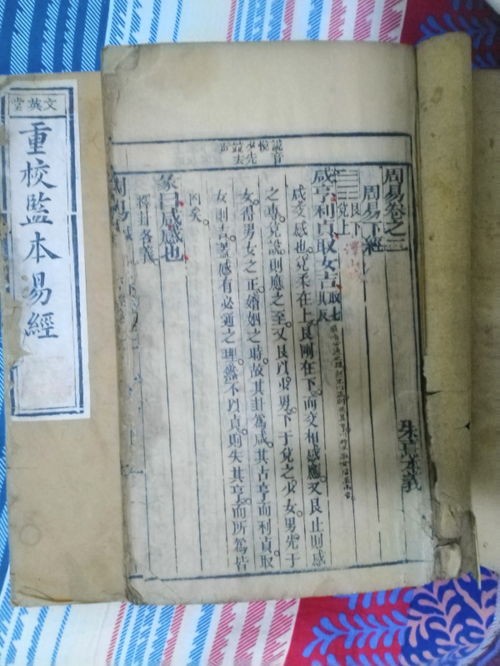 文英堂
重校監本易經
周易卷之二
周易下經
朱熹本義
艮下
兌上
咸亨利貞取女吉
咸交感也兌柔在上艮剛在下而交相感應又艮止則感
之專兌說則應之至又艮以少男下于兌之少女男先于
女得男女之正婚姻之時故其卦為咸其占亨而利貞取
女則吉蓋感有必通之理然不以貞則失其亨而所為皆
凶矣
彖曰咸感也
釋卦名義
周易